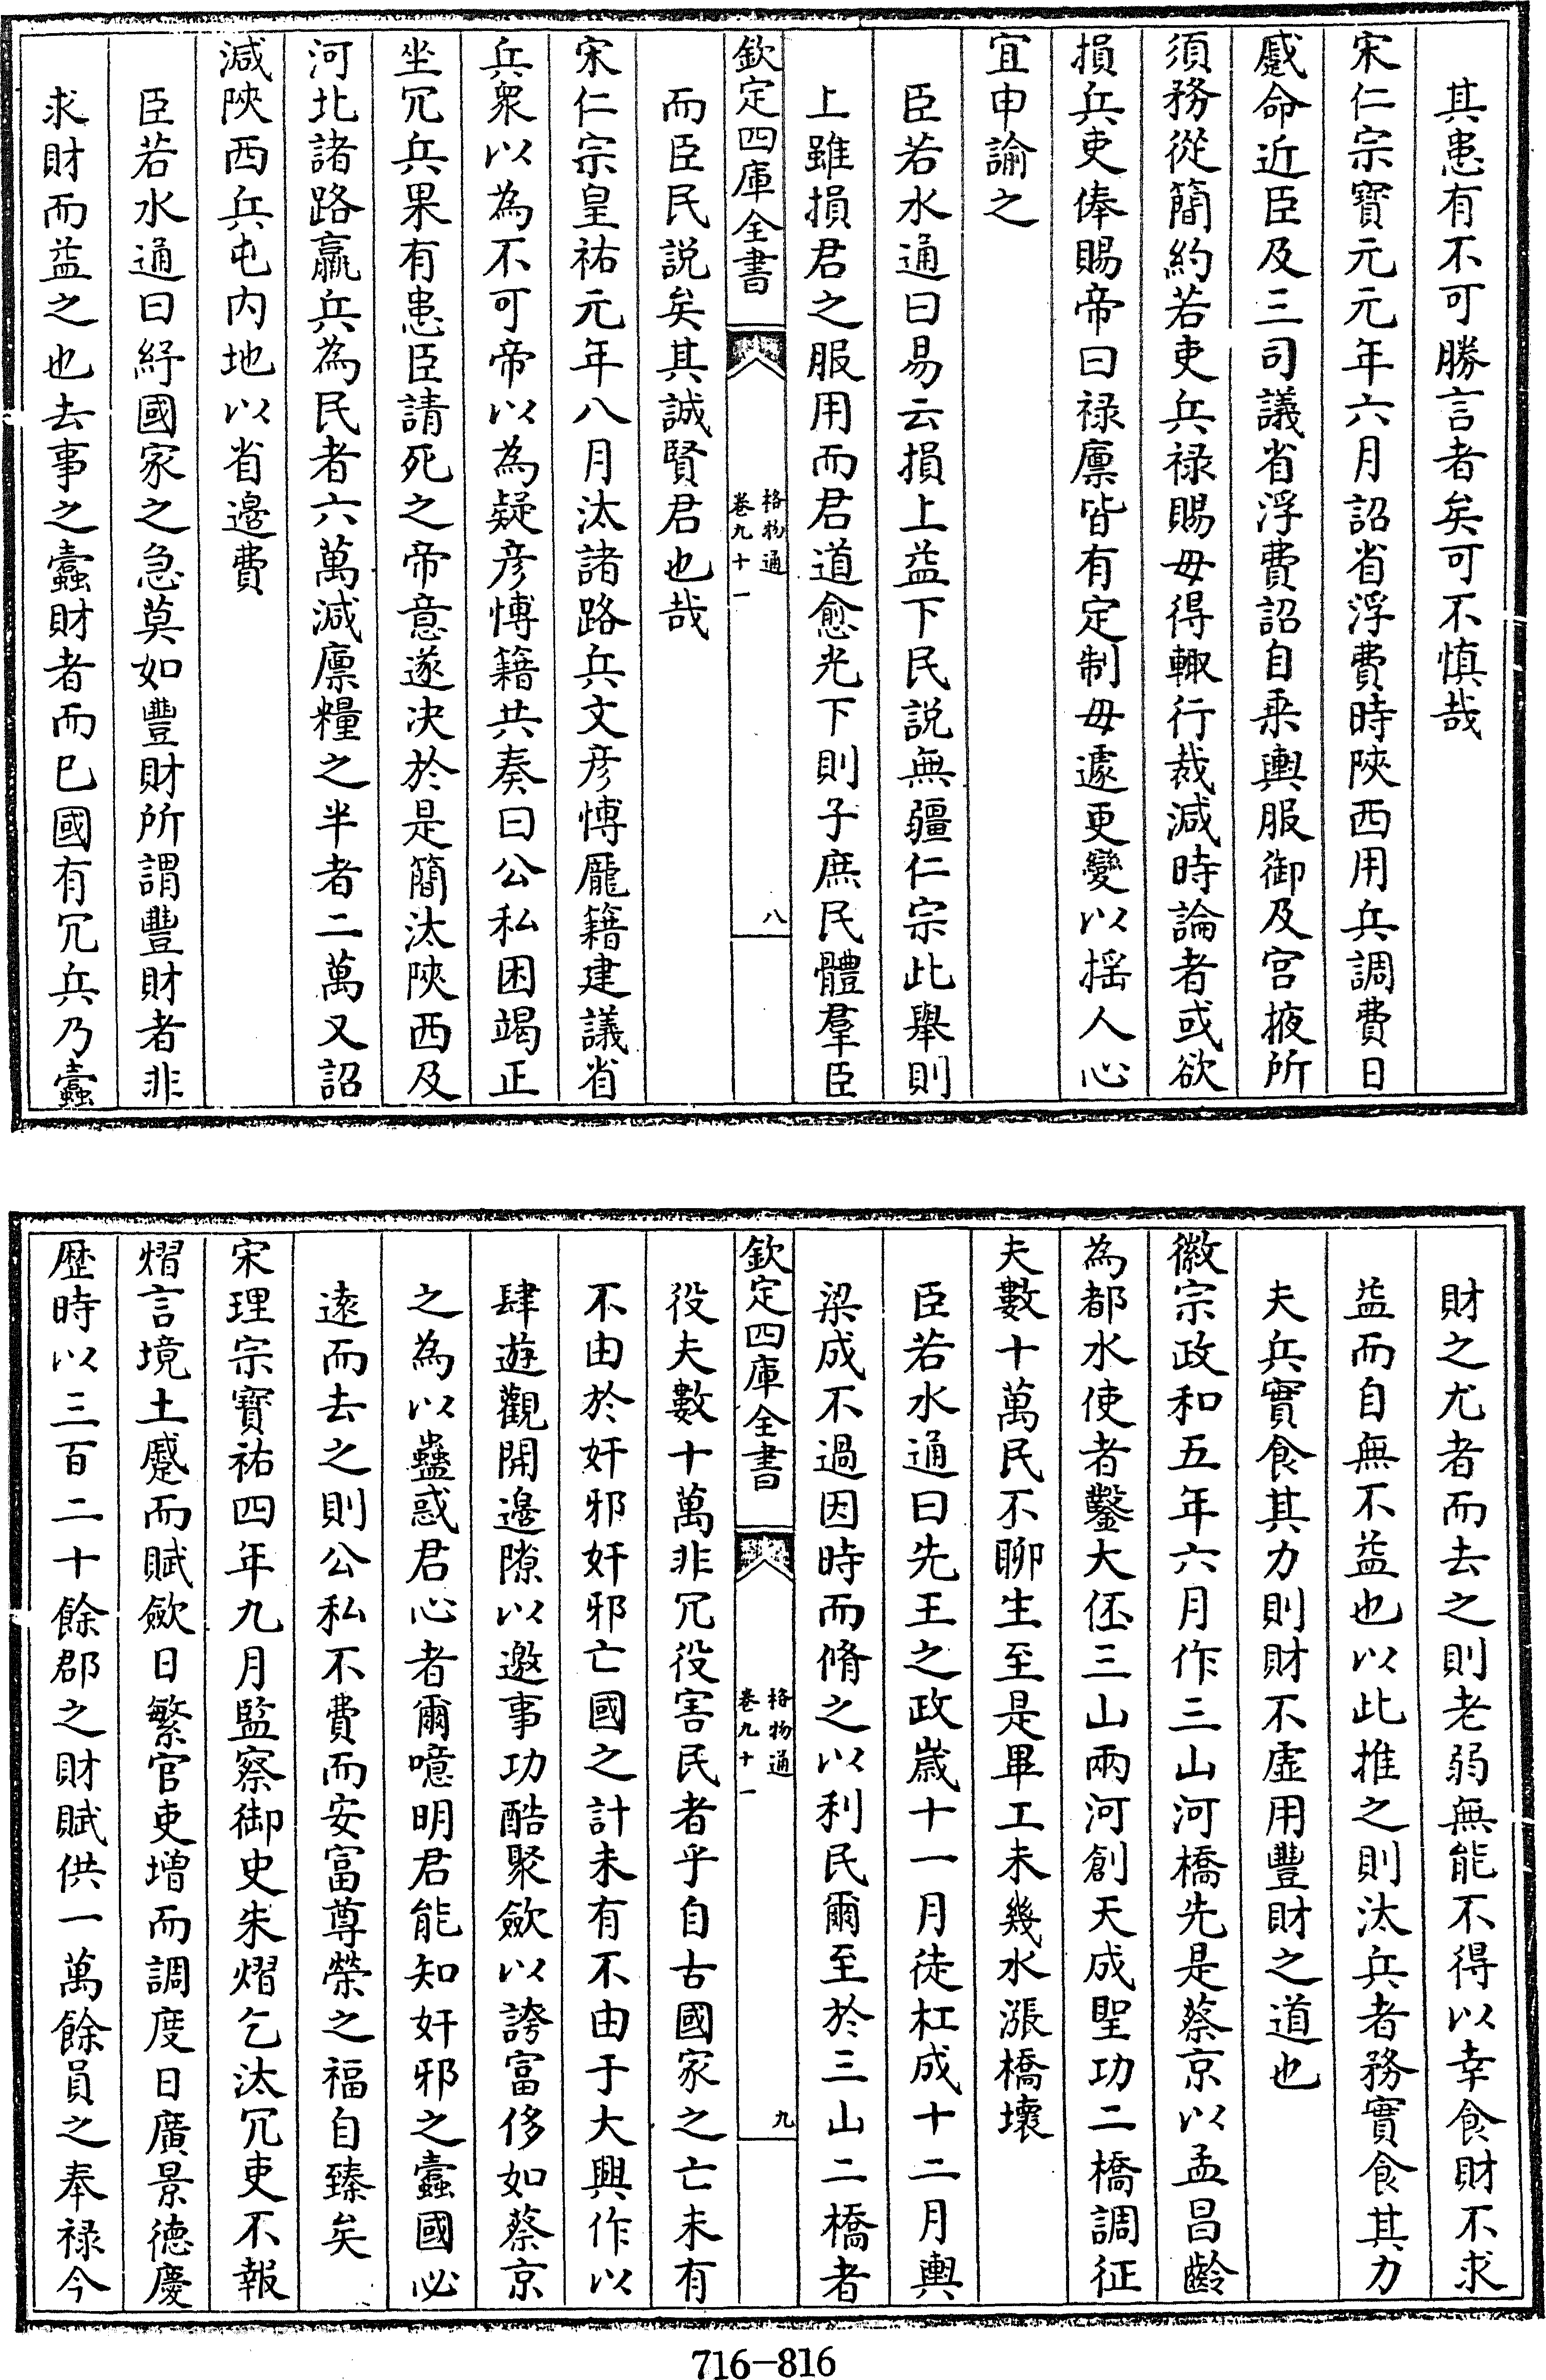 其患有不可勝言者矣可不慎哉
宋仁宗寶元元年六月詔省浮費時陜西用兵調費日
蹙命近臣及三司議省浮費詔自乘輿服御及宫掖所
須務從簡約若吏兵禄賜毋得輙行裁減時論者或欲
損兵吏俸賜帝曰禄廪皆有定制毋遽更變以揺人心
宜申諭之
臣若水通曰易云損上益下民説無疆仁宗此舉則
上雖損君之服用而君道愈光下則子庶民體羣臣
欽定四庫全書
格物通
卷九十一
八
而臣民説矣其誠賢君也哉
宋仁宗皇祐元年八月汰諸路兵文彦博龎籍建議省
兵衆以為不可帝以為疑彦博籍共奏曰公私困竭正
坐冗兵果有患臣請死之帝意遂决於是簡汰陜西及
河北諸路羸兵為民者六萬減廪糧之半者二萬又詔
減陜西兵屯内地以省邉費
臣若水通曰紓國家之急莫如豐財所謂豐財者非
求財而益之也去事之蠧財者而已國有冗兵乃蠧
財之尤者而去之則老弱無能不得以幸食財不求
益而自無不益也以此推之則汰兵者務實食其力
夫兵實食其力則財不虚用豐財之道也
徽宗政和五年六月作三山河橋先是蔡京以孟昌齡
為都水使者鑿大伾三山兩河創天成聖功二橋調征
夫數十萬民不聊生至是畢工未幾水漲橋壊
臣若水通曰先王之政歲十一月徒杠成十二月輿
梁成不過因時而脩之以利民爾至於三山二橋者
欽定四庫全書
格物通
卷九十一
九
役夫數十萬非冗役害民者乎自古國家之亡未有
不由於奸邪奸邪亡國之計未有不由于大興作以
肆遊觀開邉隙以邀事功酷聚歛以誇富侈如蔡京
之為以蠱惑君心者爾噫明君能知奸邪之蠧國必
逺而去之則公私不費而安富尊榮之福自臻矣
宋理宗寳祐四年九月監察御史朱熠乞汰冗吏不報
熠言境土蹙而賦歛日繁官吏增而調度日廣景德慶
歴時以三百二十餘郡之財賦供一萬餘員之奉禄今
716-816